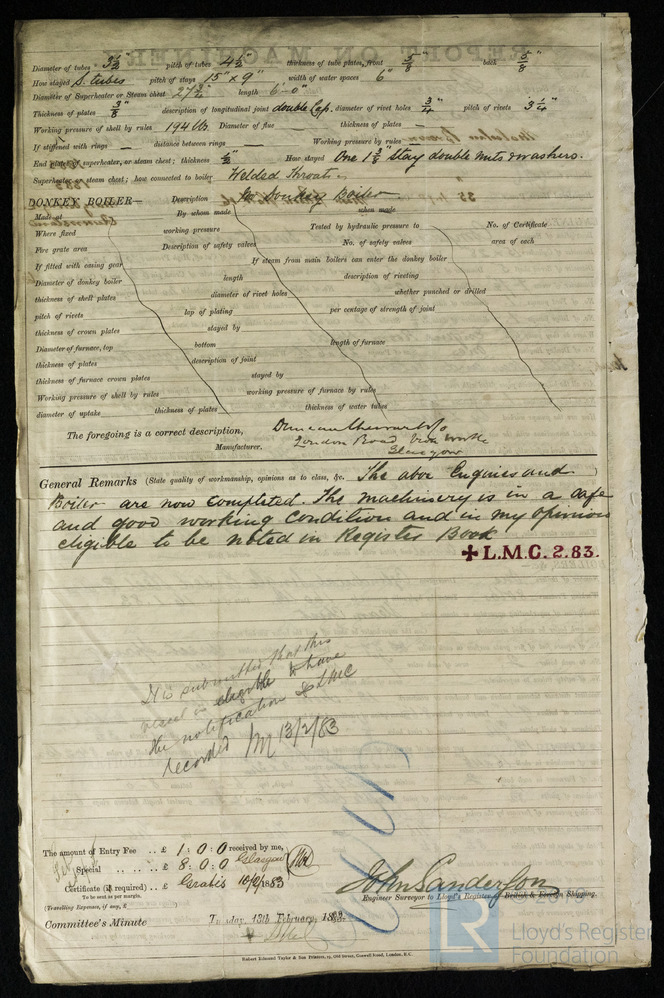 Diameter of tubes 3 1/2" pitch of tubes 4 1/2" thickness of tube plates, front 5/8" back 5/8"
How stayed S. tubes pitch of stays 15" x 9" width of water spaces 6"
Diameter of Superheater or Steam chest length 6'-0"
Thickness of plates 3/8 description of longitudinal joint double Lap. diameter of rivet holes 3/4" pitch of rivets 3 1/4"
Working pressure of shell by rules 194 lbs Diameter of flue — thickness of plates —
If stiffened with rings — distance between rings — Working pressure by rules —
End plates of superheater, or steam chest; thickness 1/2" How stayed One stay double nuts & washers.
Superheater or steam chest; how connected to boiler Welded Throat
DONKEY BOILER— Description No Donkey Boiler
Made at By whom made when made
Where fixed working pressure Tested by hydraulic pressure to No. of Certificate
Fire grate area Description of safety valves No. of safety valves area of each
If fitted with easing gear If steam from main boilers can enter the donkey boiler
Diameter of donkey boiler length description of riveting
thickness of shell plates diameter of rivet holes whether punched or drilled
pitch of rivets lap of plating per centage of strength of joint
thickness of crown plates stayed by
Diameter of furnace, top bottom length of furnace
thickness of plates description of joint
thickness of furnace crown plates stayed by
Working pressure of shell by rules working pressure of furnace by rules
diameter of uptake thickness of plates thickness of water tubes
The foregoing is a correct description,
Manufacturer. London Road Iron Works
Glasgow
General Remarks (State quality of workmanship, opinions as to class, &c. The above Engines and )
Boiler are now completed. The machinery is in a safe
and good working condition and in my opinion
eligible to be noted in Register Book
✠ L.M.C. 2.83.
It is submitted that this
vessel is eligible to have
the notification LMC
recorded 13/2/83
The amount of Entry Fee .. £ 1 : 0 : 0 received by me,
Special .. .. £ 8 : 0 : 0 Glasgow
Certificate (if required) .. £ Gratis 10/2/1883
To be sent as per margin.
(Travelling Expenses, if any, £ )
John Sanderson
Engineer Surveyor to Lloyd's Register of British & Foreign Shipping.
Committee's Minute Tuesday, 13th February, 1883.
Robert Edmund Taylor & Son Printers, 19, Old Street, Goswell Road, London, E.C.
LR
Lloyd's Register
Foundation